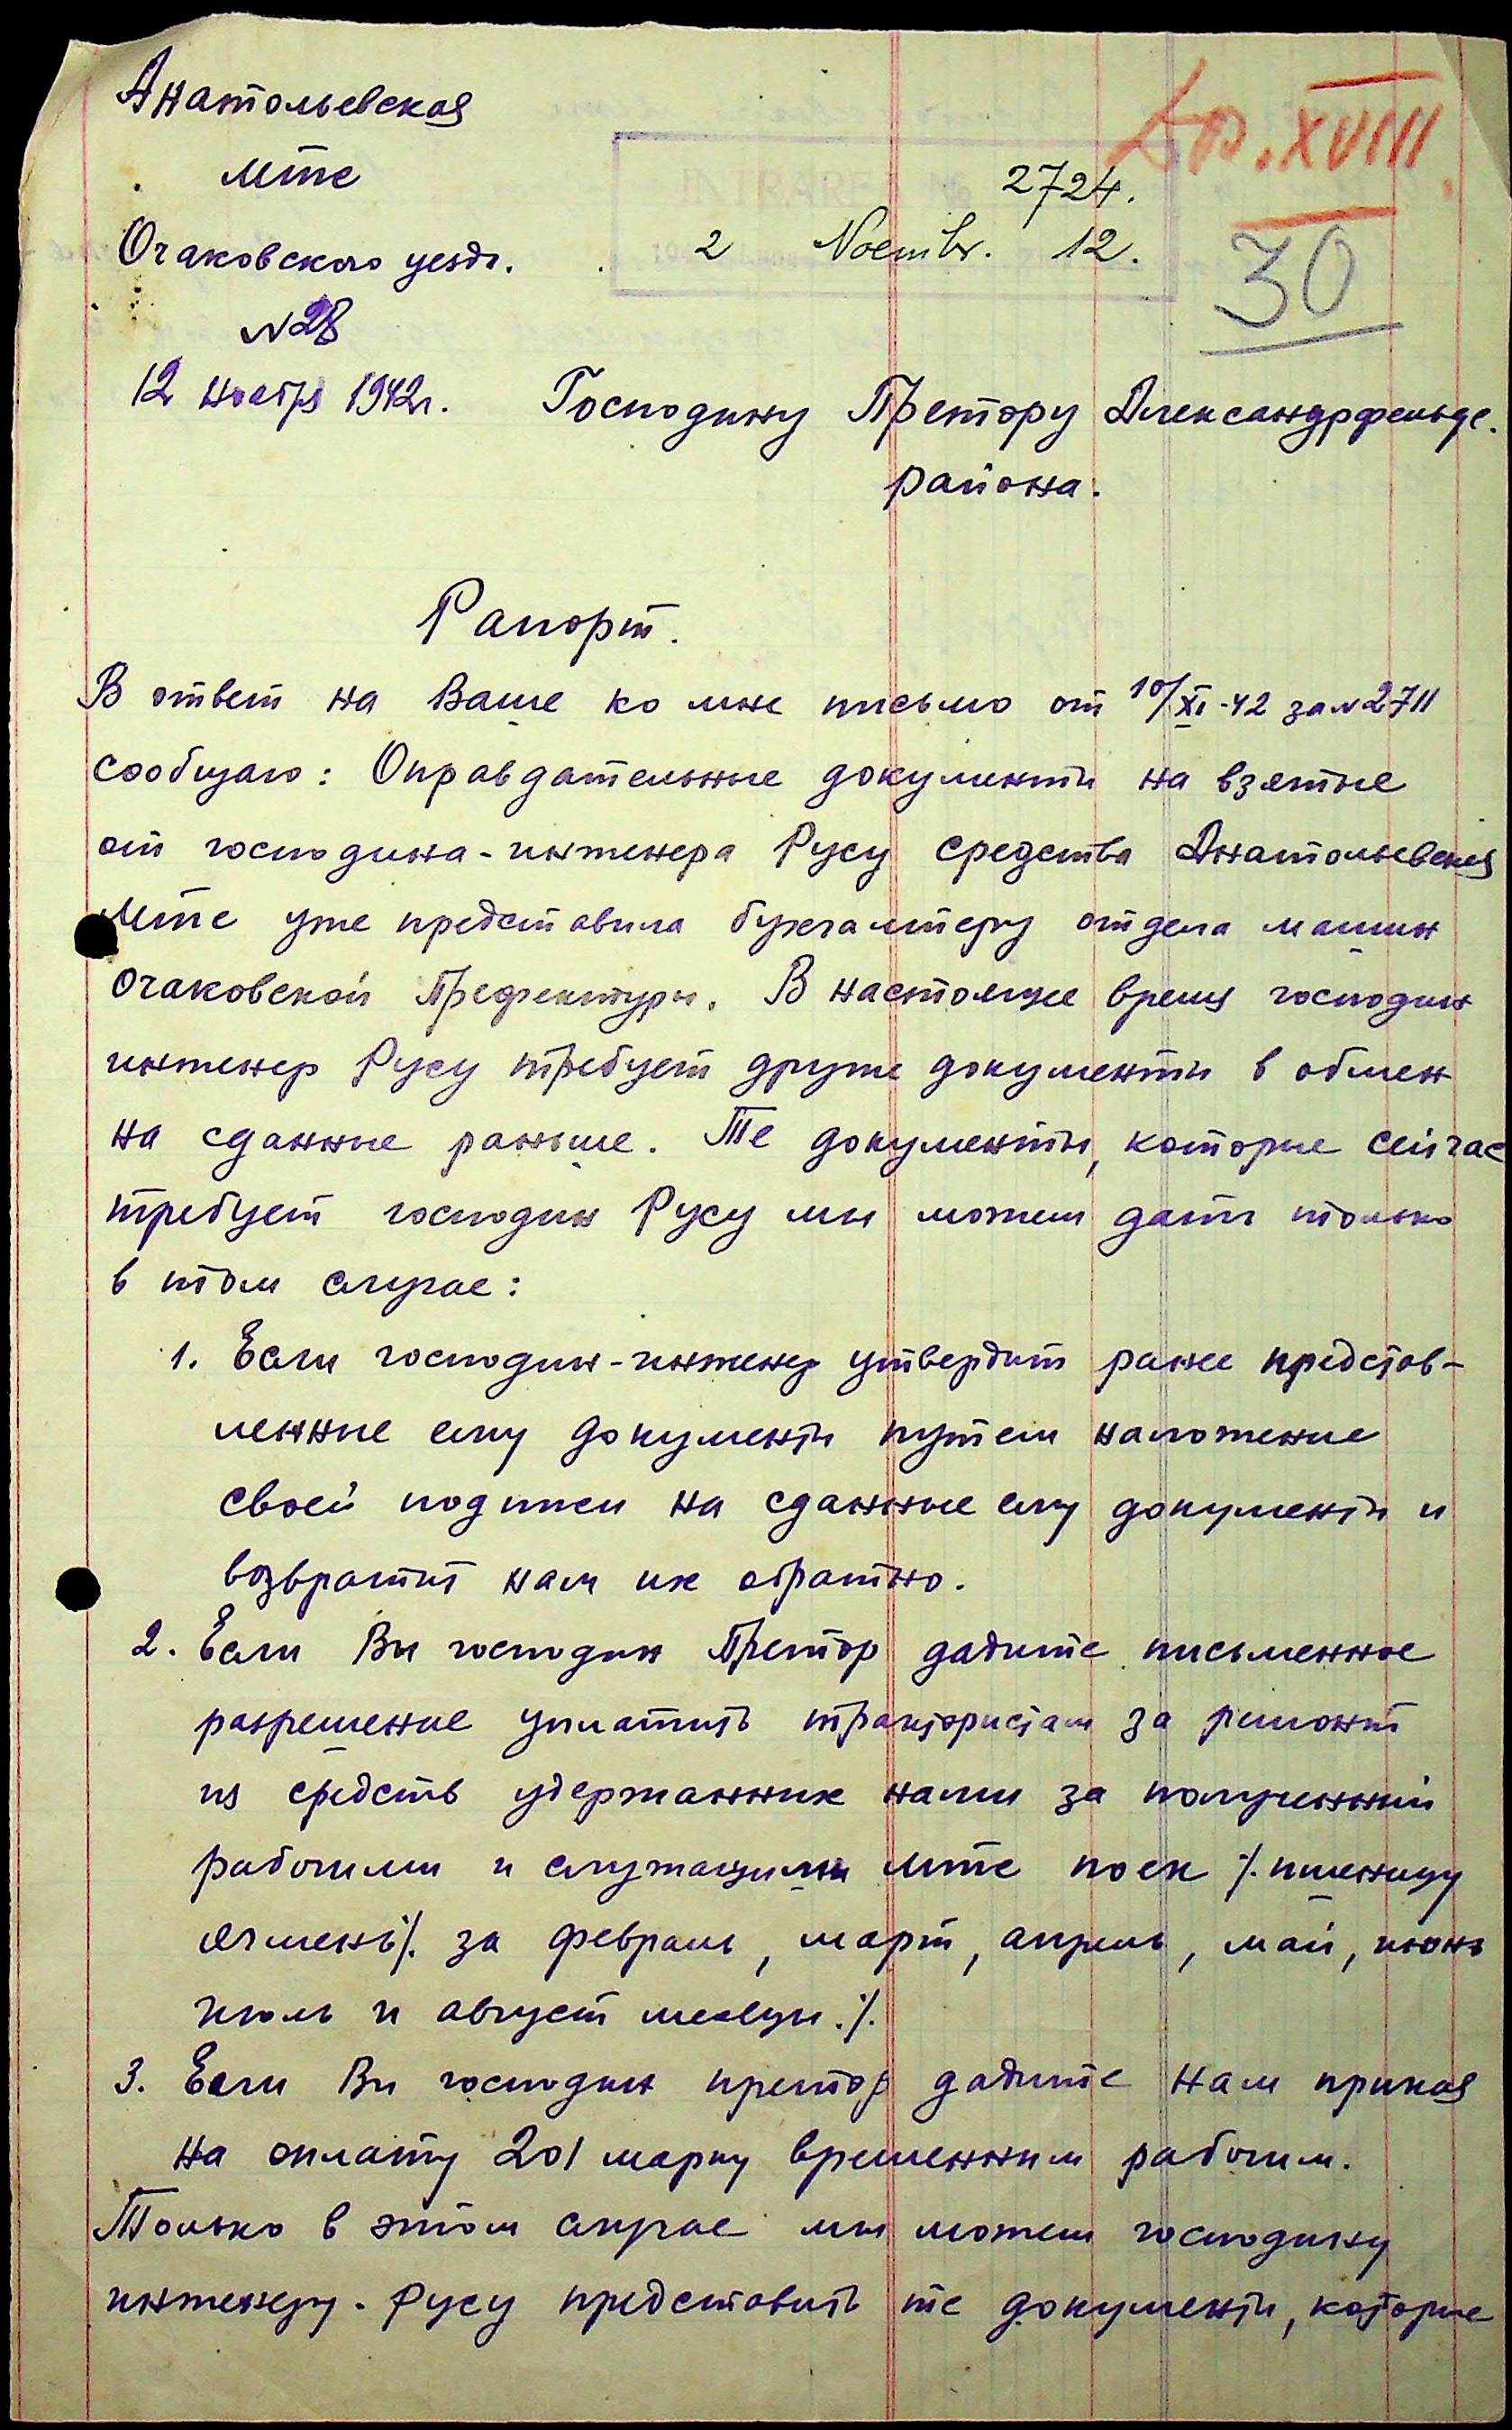 Анатольевская
Мтс
Очаковского уезда.
N28
12 ноября 1942г.
2724.
2 Noembr. 12.
XVIII
30
Господину Претору Александрфельде.
района.
Рапорт.
В ответ на Ваше ко мне письмо от 10/XI-42 за N2711
сообщаю: Оправдательные документы на взятые
от господина-инженера Русу средства Анатольевская
Мтс уже представила бухгалтеру отдела машин
Очаковской Префектуры. В настоящее время господин
инженер Русу требует другие документы в обмен
на сданные раньше. Те документы, которые сейчас
требует господин Русу мы можем дать только
в том случае:
1. Если господин-инженер утвердит ранее представ-
ленные ему документы путем наложение
своей подписи на сданные ему документы и
возвратит нам их обратно.
2. Если Вы господин Претор дадите письменное
разрешение уплатить трактористам за ремонт
из средств удержанных нами за полученный
рабочими и служащими Мтс поек /. пшеницу
ячмень/. за февраль, март, апрель, май, июнь
июль и август месяцы. /.
3. Если Вы господин претор дадите нам приказ
на оплату 201 марку временным рабочим.
Только в этом случае мы можем господину
инженеру - Русу представить те документы, которые